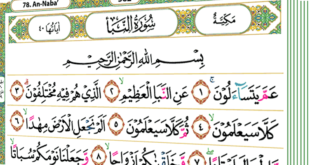 78. An-Naba'
مَكِّيَّةٌ سُورَةُ النَّبَإِ آيَاتُهَا ٤٠
بِسْمِ اللَّهِ الرَّحْمَٰنِ الرَّحِيمِ
عَمَّ يَتَسَاءَلُونَ ١ عَنِ النَّبَإِ الْعَظِيمِ ٢ الَّذِي هُمْ فِيهِ مُخْتَلِفُونَ ٣
كَلَّا سَيَعْلَمُونَ ٤ ثُمَّ كَلَّا سَيَعْلَمُونَ ٥ أَلَمْ نَجْعَلِ الْأَرْضَ مِهَادًا ٦
٧ وَخَلَقْنَاكُمْ أَزْوَاجًا ٨ وَجَعَلْنَا نَوْمَكُمْ سُبَاتًا